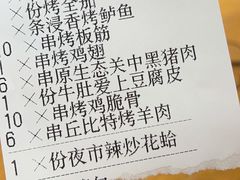 ×份烤全茄
×条浸香烤鲈鱼
0 ×串烤板筋
×串烤鸡翅
×串原生态关中黑猪肉
6 ×份牛肚爱上豆腐皮
1 ×串烤鸡脆骨
10 ×串丘比特烤羊肉
6
×份夜市辣炒花蛤